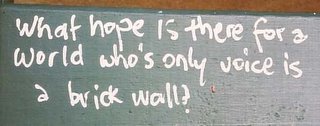 What hope is there for a
World who's only voice is
a brick wall?